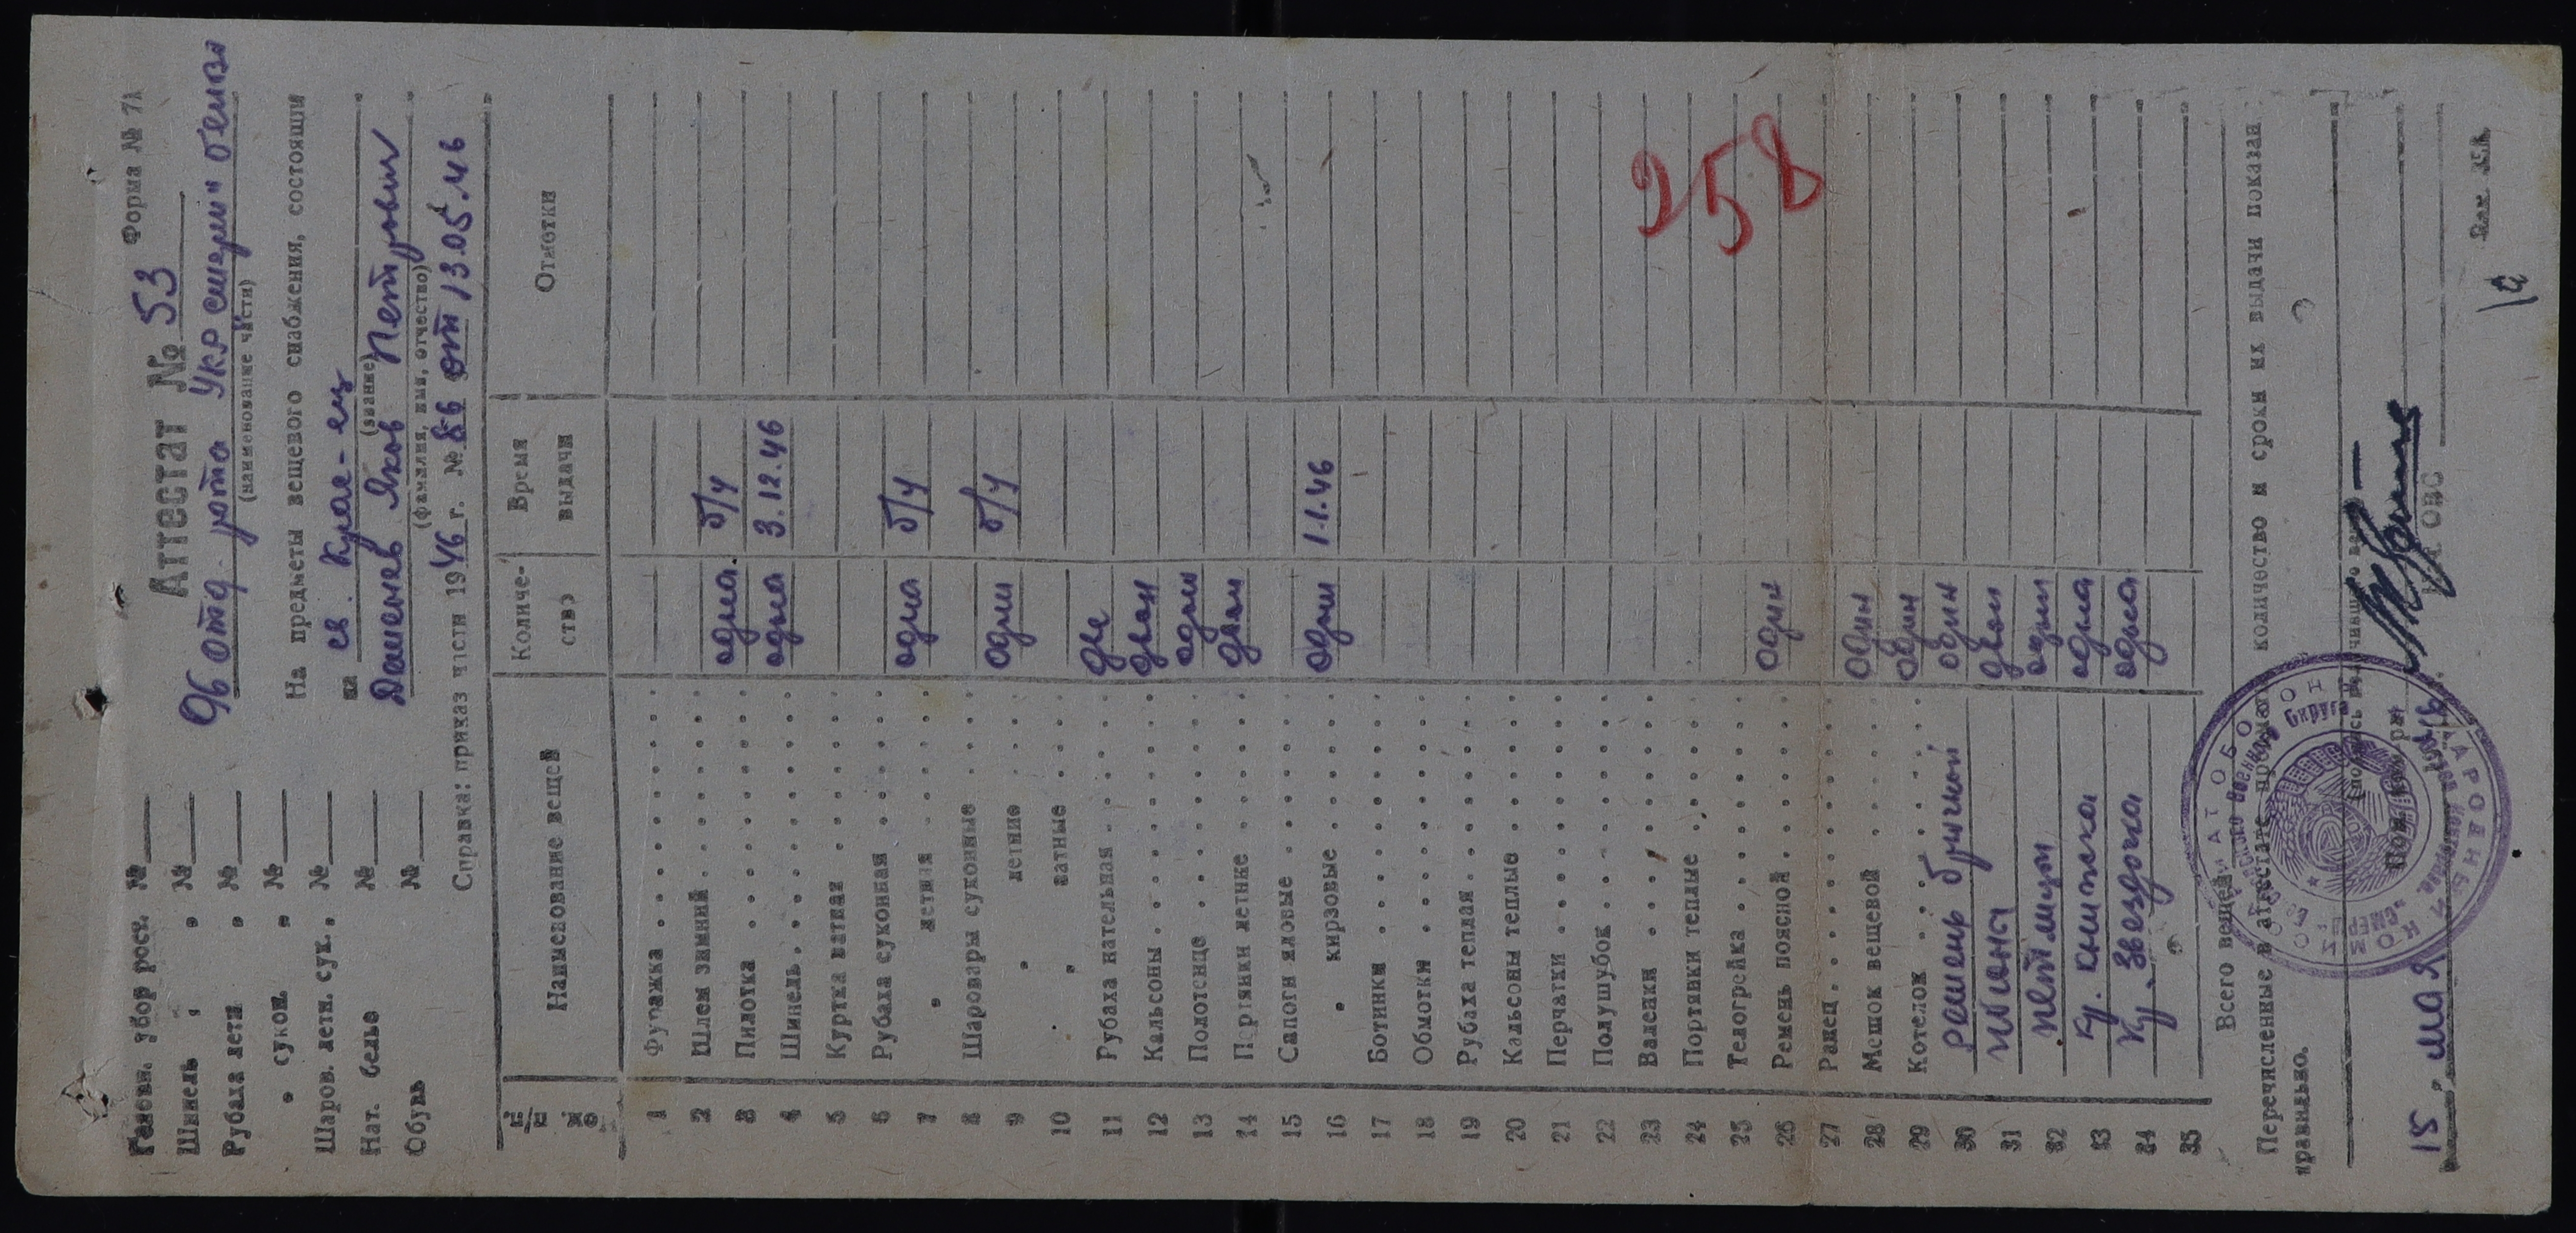 Форма № 71
Аттестат № 53
96 отд рота УКР "смерш" белвв
(наименование части)
На предметы вещевого снабжения, состоящи
на св. Крас-ец
(звание)
Яков Петрович
(фамилия, имя, отчество)
Справка: приказ части 1946 г. № 86 от 13.05.46
Головн. убор росч. №
Шинель " №
Рубаха летн " №
" сукон. " №
Шаров. летн. сук. " №
Нат. белье №
Обувь №
№№ п/п Наименование вещей Количество Время выдачи Отметки
1 Фуражка
2 Шлем зимний
3 Пилотка одна б/у
4 Шинель одна 3.12.46
5 Куртка ватная
6 Рубаха суконная
7 " летняя одна б/у
8 Шаровары суконные
9 " летние один б/у
10 " ватные
11 Рубаха нательная две
12 Кальсоны двои
13 Полотенце один
14 Портянки летние двои
15 Сапоги яловые
16 " кирзовые одни 1.1.46
17 Ботинки
18 Обмотки
19 Рубаха теплая
20 Кальсоны теплые
21 Перчатки
22 Полушубок
23 Валенки
24 Портянки теплые
25 Телогрейка
26 Ремень поясной один
27 Ранец
28 Мешок вещевой один
29 Котелок один
30 ремень брючной один
31 погоны двои
32 петлицы одни
33 кр. книжка одна
34 кр. звездочка одна
35
258
Всего вещей
Перечисленные в аттестате количество и сроки их выдачи показан
правильно.
15 " мая 1946 г.
ОВС